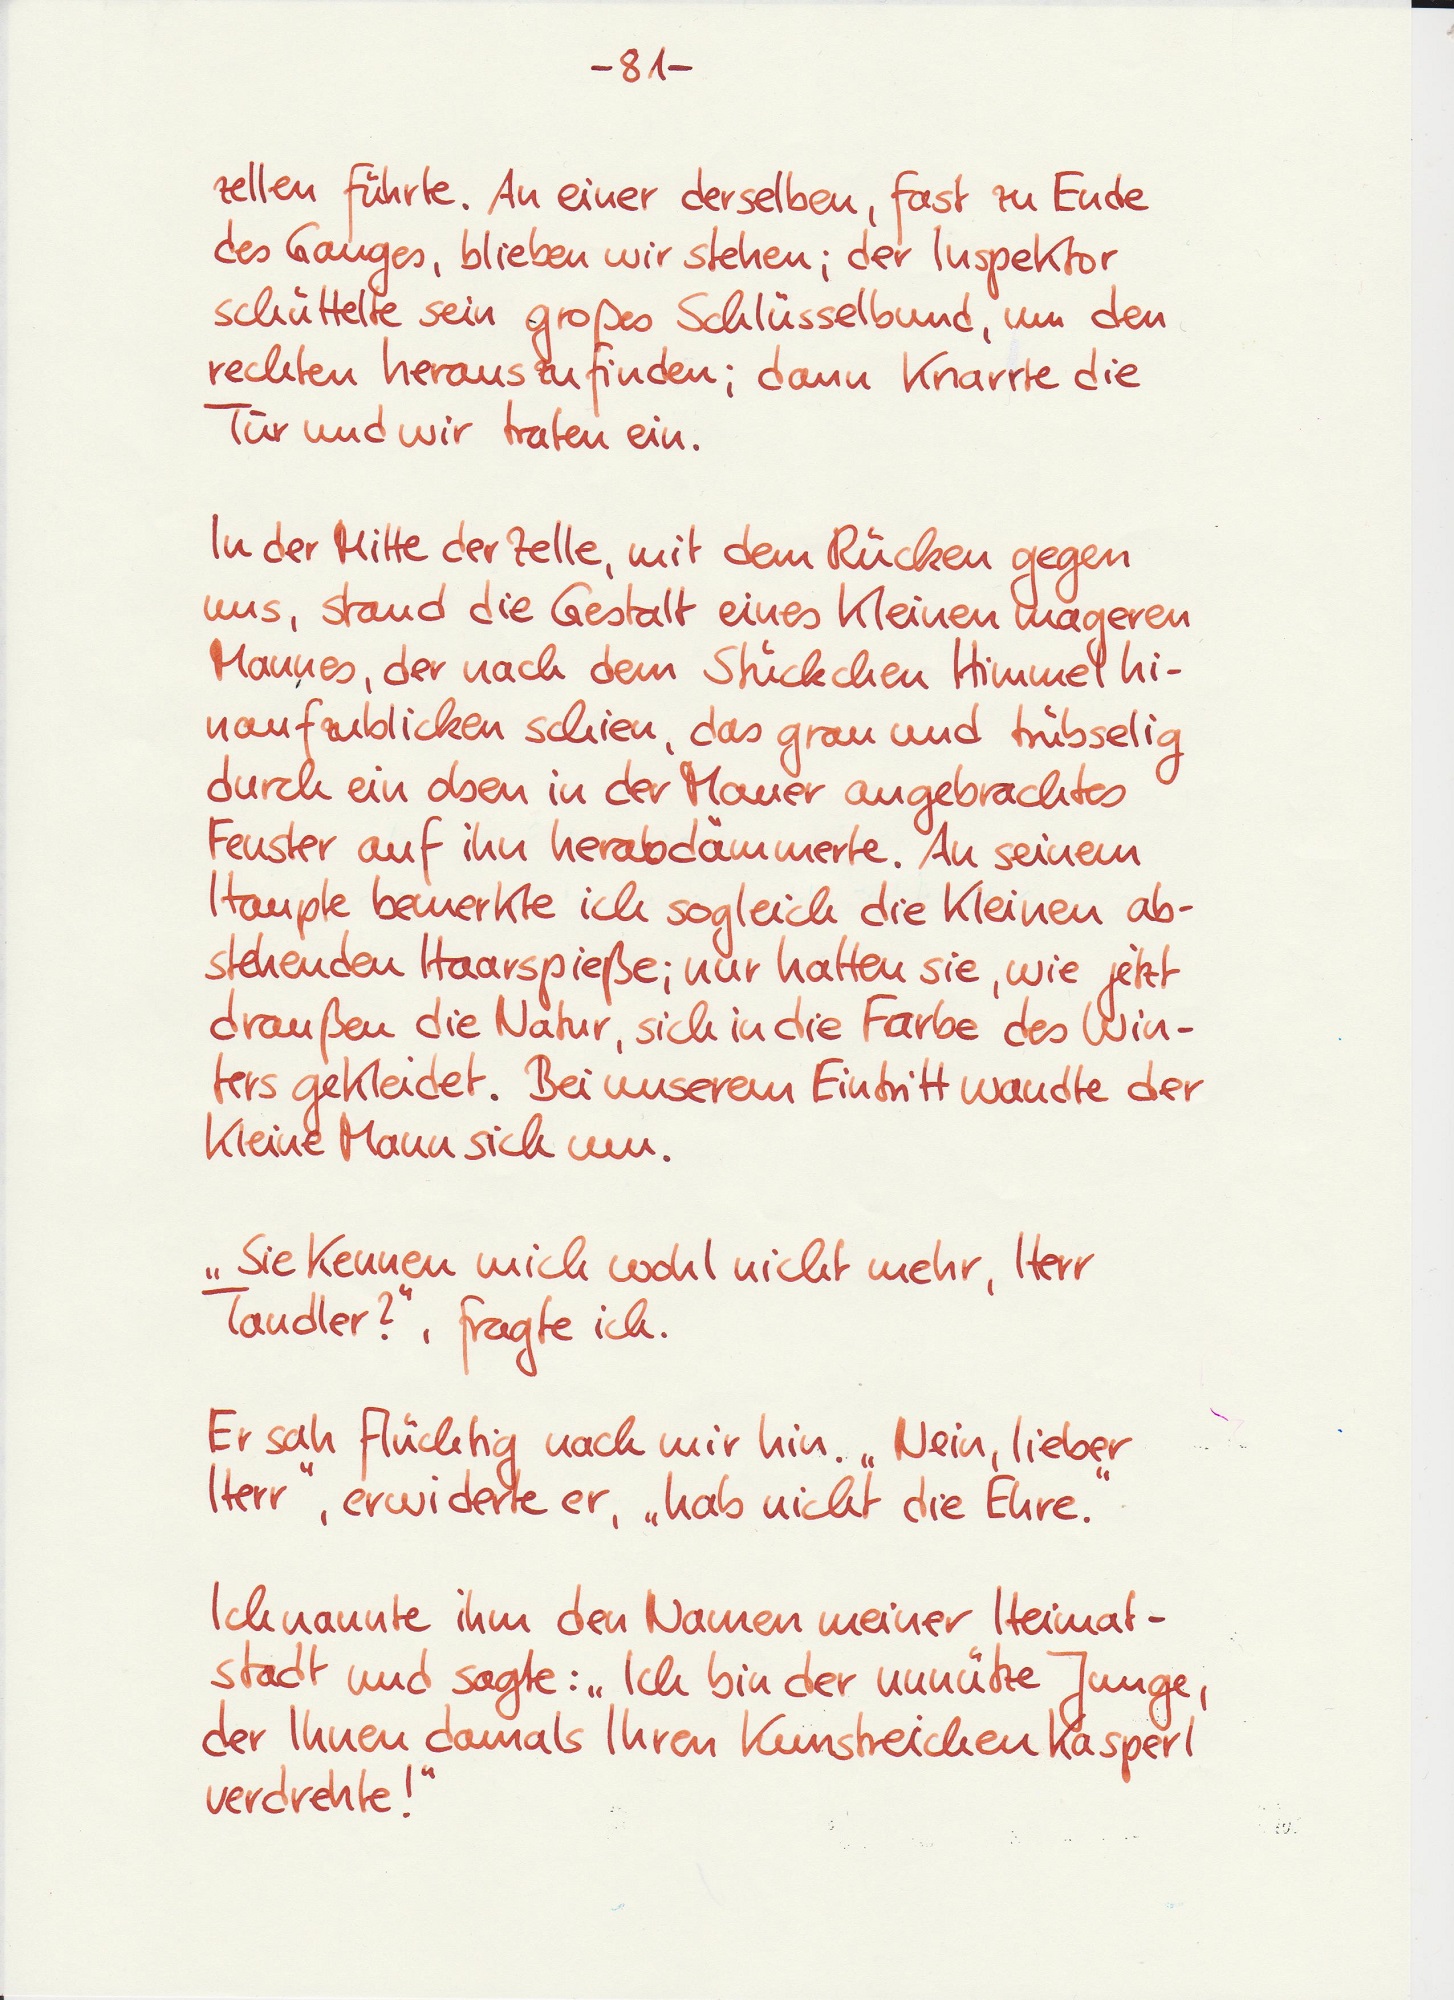 -81-
zellen führte. An einer derselben, fast zu Ende
des Ganges, blieben wir stehen; der Inspektor
schüttelte sein großes Schlüsselbund, um den
rechten herauszufinden; dann knarrte die
Tür und wir traten ein.
In der Mitte der Zelle, mit dem Rücken gegen
uns, stand die Gestalt eines kleinen mageren
Mannes, der nach dem Stückchen Himmel hi-
naufzublicken schien, das grau und trübselig
durch ein oben in der Mauer angebrachtes
Fenster auf ihn herabdämmerte. An seinem
Haupte bemerkte ich sogleich die kleinen ab-
stehenden Haarspieße; nur hatten sie, wie jetzt
draußen die Natur, sich in die Farbe des Win-
ters gekleidet. Bei unserem Eintritt wandte der
kleine Mann sich um.
„Sie kennen mich wohl nicht mehr, Herr
Tandler?“, fragte ich.
Er sah flüchtig nach mir hin. „Nein, lieber
Herr“, erwiderte er, „hab nicht die Ehre.“
Ich nannte ihm den Namen meiner Heimat-
stadt und sagte: „Ich bin der unnütze Junge,
der Ihnen damals Ihren kunstreichen Kasperl
verdrehte!“